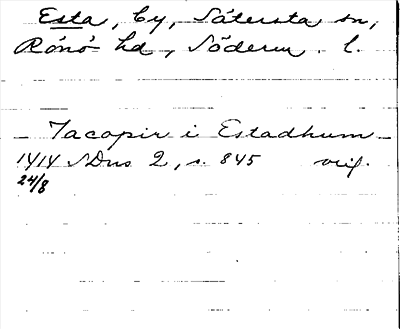 Esta, by, Sätersta sn,
Rönö hd, Söderm. l.
Jacopir i Estadhum
1414 SDns 2, s. 845 orig.
24/8